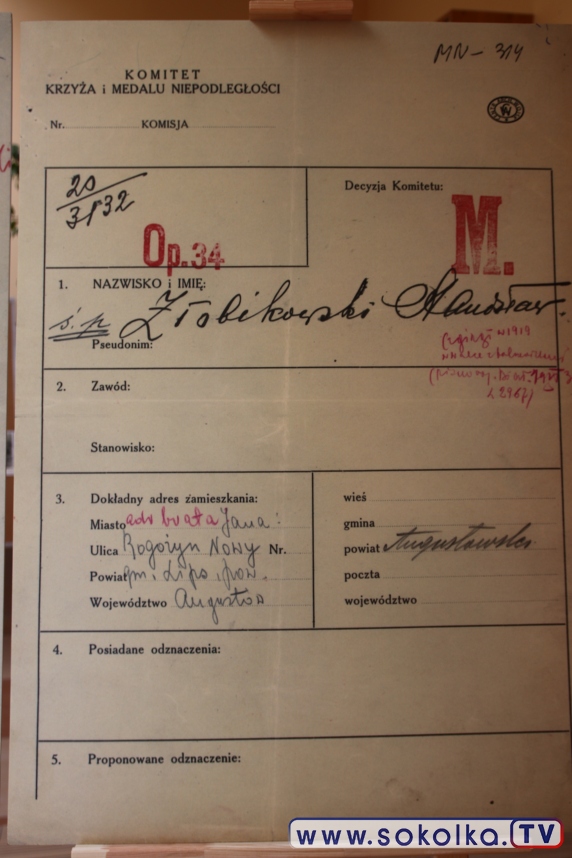 MN-314
KOMITET
KRZYŻA i MEDALU NIEPODLEGŁOŚCI
Nr. KOMISJA
20
3/32
Op.34
Decyzja Komitetu:
M.
1. NAZWISKO i IMIĘ:
ś.p Złobikowski Stanisław.
Pseudonim:
w 1919
2. Zawód:
Stanowisko:
3. Dokładny adres zamieszkania:
Miasto adr brata Jana:
Ulica Rogożyn Nowy Nr.
Powiat gm. Lips, pow.
Województwo Augustów
wieś
gmina
powiat Augustowski
poczta
województwo
4. Posiadane odznaczenia:
5. Proponowane odznaczenie:
www.sokolka.TV